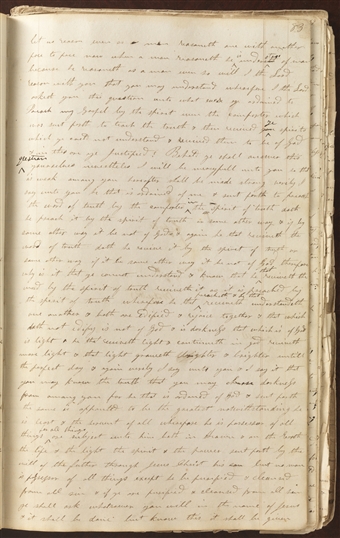 let us reason even as a man reasoneth one with another
face to face now when a man reasoneth he is understood of man
because he reasoneth as a man even so will I the Lord
reason with you that you may understand wherefore I the Lord
asked you this question unto what were ye ordained to
Preach my gospel by the spirit even the comforter which
was sent forth to teach the truth & then received ye spirits
which ye could not understand & received them to be of God
& in this are ye Justified Behold ye shall answer this
question yourselves nevertheless I will be mercyfull unto you he that
is weak among you hereafter shall be made strong verily I
say unto you he that is ordained of me & sent forth to preach
the word of truth by the comforter in the spirit of truth doth
he preach it by the spirit of truth or some other way & if by
some other way it be not of God & again he that receiveth the
word of truth doth he receive it by the spirit of truth or
some other way if it be some other way it be not of God therefore
why is it that ye cannot understand & know that he that receiveth the
word by the spirit of truth receiveth it as it is preached by
the spirit of truth wherefore he that preacheth & he that receiveth understandeth
one another & both are edified & rejoice together & that which
doth not edify is not of God & is darkness that which is of God
is light & he that receiveth light & continueth in god receiveth
more light & that light groweth brighter & brighter untill
the perfect day & again verely I say unto you & I say it that
you may know the truth that you may chase darkness
from among you for he that is ordained of God & sent forth
the same is appointed to be the greatest notwithstanding he
is least & the servant of all wherefore he is possessor of all
things for all things are subject unto him both in Heaven & on the Earth
the life & the light the spirit & the power sent forth by the
will of the father through Jesus Christ his son but no man
is possessor of all things except he be purified & cleansed
from all sin & if ye are purified & cleansed from all sin
ye shall ask whatsoever you will in the name of Jesus
& it shall be done but know this it shall be given